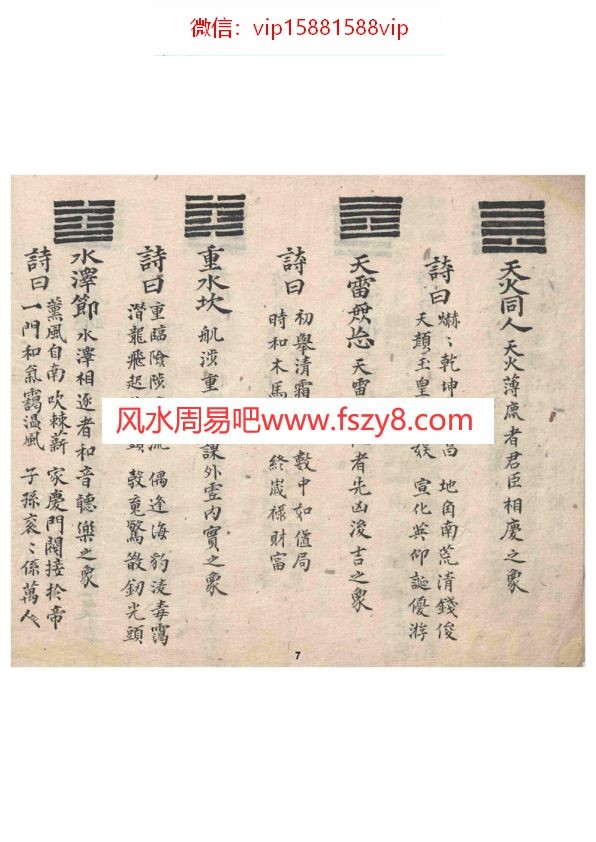 微信：vip15881588vip
天火同人 天火薄廉者君臣相慶之象
詩曰 爀〻乾坤 昌 地角南荒清錢俊
天顏玉皇 娛 宣化共仰誕優游
天雷 天雷 者先凶後吉之象
詩曰 初舉清霜 數中如值局
時和木馬 終歲祿財富
重水坎 航涉重 課外虛內實之象
詩曰 重臨險陟 流 偶逢海豹淩毒霭
潛龍飛起 頭 㲉竟驚散釼光頭
水澤節 水澤相逐者和音聽樂之象
詩曰 薰風自南吹棘新 家慶門闌接於帝
一門和氣靄温風 子孫衮〻係萬人
风水周易吧www.fszy8.com
7